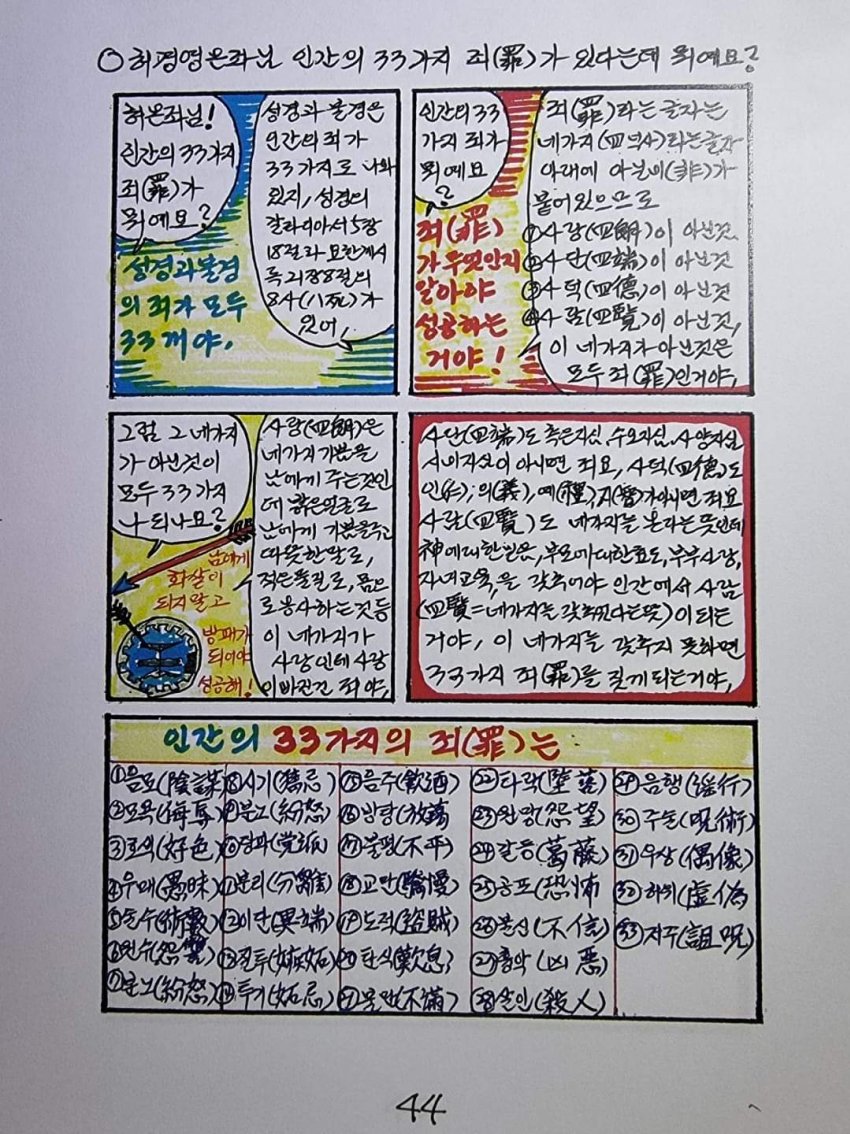 ○ 허경영은좌님 인간의 33가지 죄(罪)가 있다는데 뭐예요?
허은좌님!
인간의 33가지
죄(罪)가
뭐예요?
성경과 불경은
인간의 죄가
33가지로 나와
있지, 성경의
갈라디아서 5장
18절과 요한계시
록 21장 8절의
8사(八死)가
있어,
성경과 불경
의 죄가 모두
33개야,
인간의 33
가지 죄가
뭐예요
?
죄(罪)라는 글자는
네가지(四넉사)라는글자
아래에 아닐비(非)가
붙어있으므로
①사랑(四朗)이 아닌것,
②사단(四端)이 아닌것
③사덕(四德)이 아닌것
④사람(四覽)이 아닌것,
이 네가지가 아닌것은
모두 죄(罪)인거야,
죄(罪)
가 무엇인지
알아야
성공하는
거야!
그럼 그 네가지
가 아닌것이
모두 33가지
나 되나요?
사랑(四朗)은
네가지 기쁨을
남에게 주는것인
데 밝은얼굴로
남에게 기쁨을주고
따뜻한말로,
적은물질로, 몸으
로봉사하는것등
이 네가지가
사랑인데 사랑
이빠진건 죄야,
남에게
화살이
되지말고
방패가
되어야
성공해!
사단(四端)도 측은지심, 수오지심, 사양지심
시비지심이 아니면 죄요, 사덕(四德)도
인(仁), 의(義), 예(禮), 지(智)가아니면 죄요
사람(四覽)도 네가지를 본다는 뜻인데
神에대한믿음, 부모에대한효도, 부부사랑,
자녀교육,을 갖추어야 인간에서 사람
(四覽=네가지를 갖추었다는뜻)이 되는
거야, 이 네가지를 갖추지 못하면
33가지 죄(罪)를 짖게되는거야,
인간의 33가지의 죄(罪)는
①음모(陰謀) ⑧시기(猜忌) ⑮음주(飮酒) ㉒타락(墮落) ㉙음행(淫行)
②모욕(侮辱) ⑨분노(紛怒) ⑯방탕(放蕩) ㉓원망(怨望) ㉚주술(呪術)
③호색(好色) ⑩당파(党派) ⑰불평(不平) ㉔갈등(葛藤) ㉛우상(偶像)
④우매(愚昧) ⑪분리(分離) ⑱교만(驕慢) ㉕공포(恐怖) ㉜허위(虛偽)
⑤술수(術數) ⑫이단(異端) ⑲도적(盜賊) ㉖불신(不信) ㉝저주(詛呪)
⑥원수(怨讐) ⑬질투(嫉妬) ⑳탄식(歎息) ㉗흉악(凶惡)
⑦분노(紛怒) ⑭투기(妬忌) ㉑불만(不滿) ㉘살인(殺人)
44